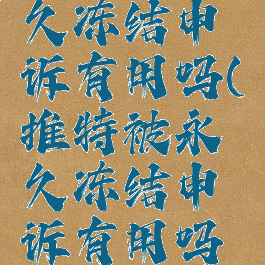 久冻结申
诉有用吗(
推特被永
久冻结申
诉有用吗